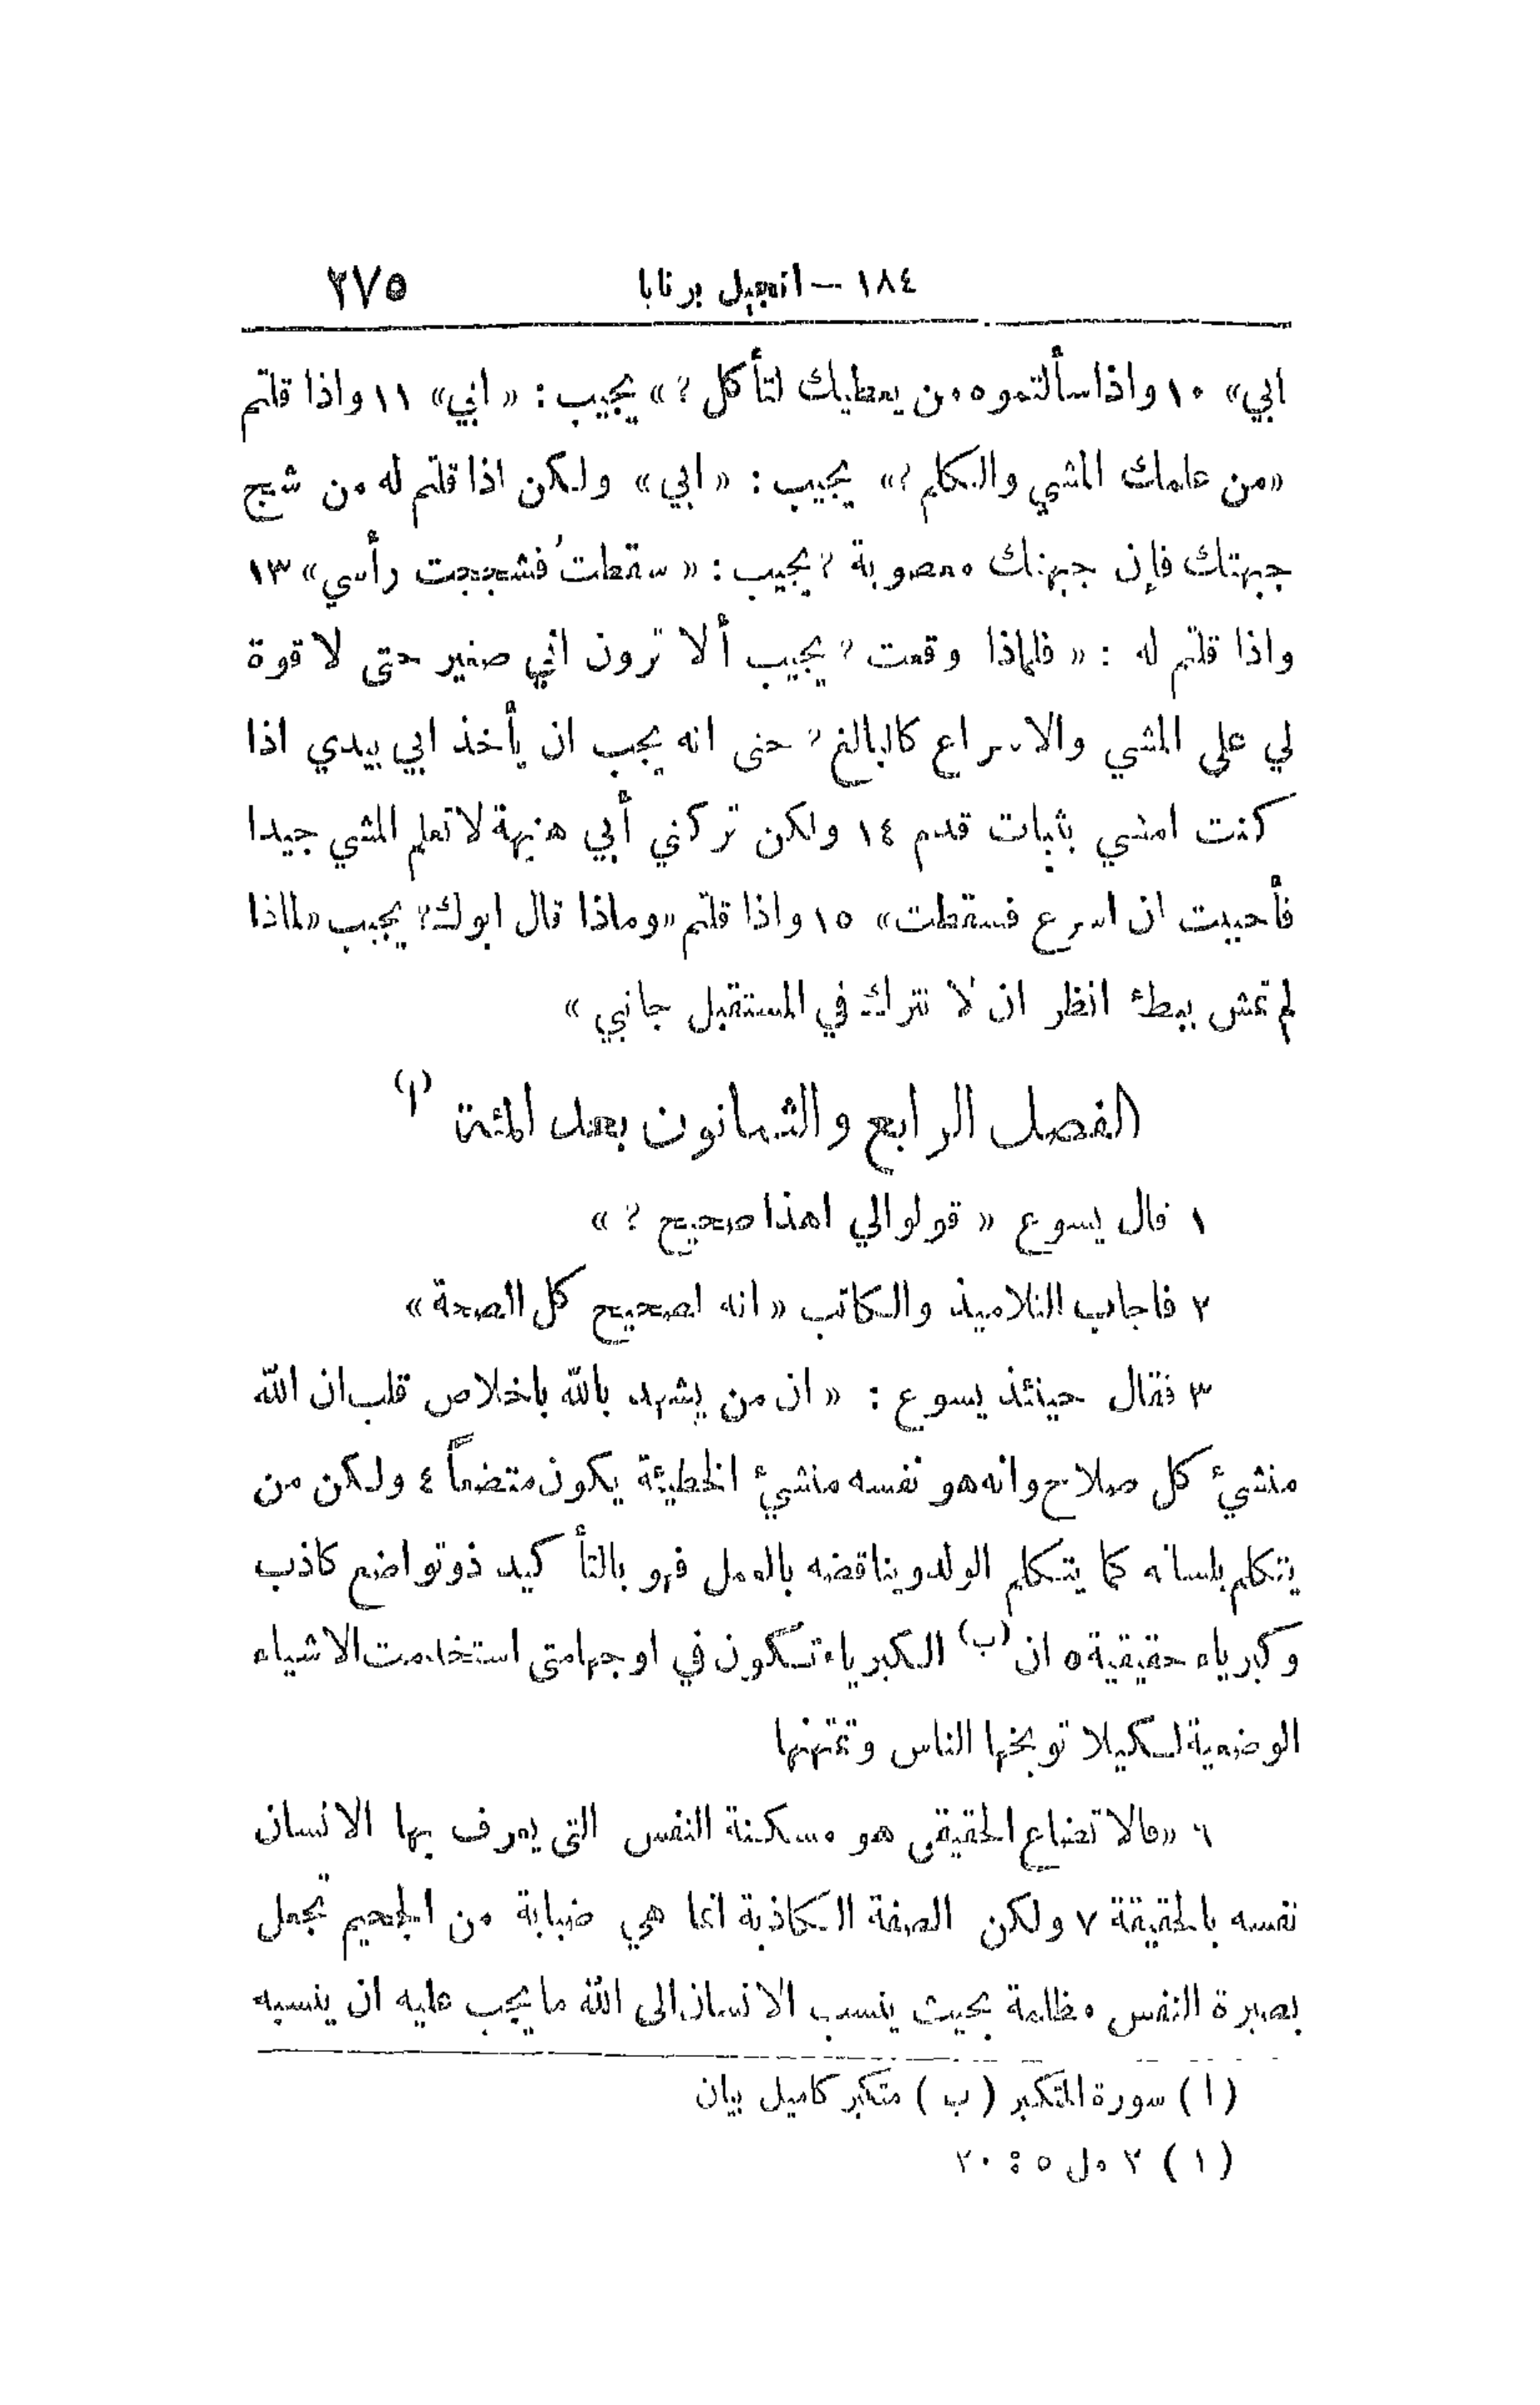 ١٨٤ — انجيل برنابا ٢٧٥
ابي» ١٠ واذا سألتموه من يعطيك لتأكل ؟» يجيب : « ابي» ١١ واذا قلتم
«من علمك المشي والتكلم ؟» يجيب : « ابي» ولكن اذا قلتم له من شج
جبهتك فإن جبهتك معصوبة ؟ يجيب : « سقطتُ فشججت رأسي» ١٣
واذا قلتم له : « فلماذا وقعت ؟ يجيب ألا ترون اني صغير حتى لا قوة
لي على المشي والاسراع كالبالغ ؟ حتى انه يجب ان يأخذ ابي بيدي اذا
كنت امشي بثبات قدم ١٤ ولكن تركني أبي هنيهة لاتعلم المشي جيدا
فأحببت ان اسرع فسقطت» ١٥ واذا قلتم «وماذا قال ابوك؟ يجيب «لماذا
لم تمش ببطء انظر ان لا تترك في المستقبل جانبي »
الفصل الرابع والثمانون بعد المئة (ا)
١ قال يسوع « قولوا لي اهذا صحيح ؟ »
٢ فاجاب التلاميذ والكاتب « انه لصحيح كل الصحة »
٣ فقال حينئذ يسوع : « ان من يشهد بالله باخلاص قلب ان الله
منشيء كل صلاح وانه هو نفسه منشيء الخطيئة يكون متضعاً ٤ ولكن من
يتكلم بلسانه كما يتكلم الولد ويناقضه بالعمل فهو بالتأكيد ذو تواضع كاذب
وكبرياء حقيقية ٥ ان (ب) الكبرياء تكون في اوجها متى استخدمت الاشياء
الوضعية لكيلا توبخها الناس وتمتهنها
٦ «فالاتضاع الحقيقي هو مسكنة النفس التي يعرف بها الانسان
نفسه بالحقيقة ٧ ولكن الصفة الكاذبة انما هي ضبابة من الجحيم تجعل
بصيرة النفس مظلمة بحيث ينسب الانسان الى الله ما يجب عليه ان ينسبه
(ا) سورة المتكبر (ب) متكبر كاميل بيان
(١) ٢ مل ٥ : ٢٠